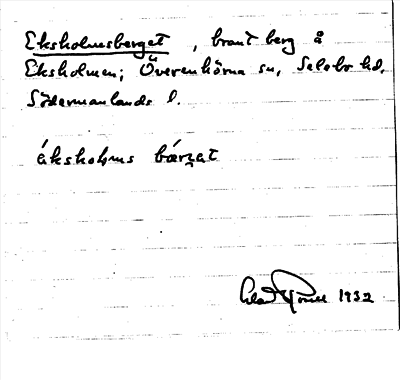 Eksholmsberget, brant berg å
Eksholmen; Överenhörna sn, Selebo hd,
Södermanlands l.
éksholms bærg̣ət
1932